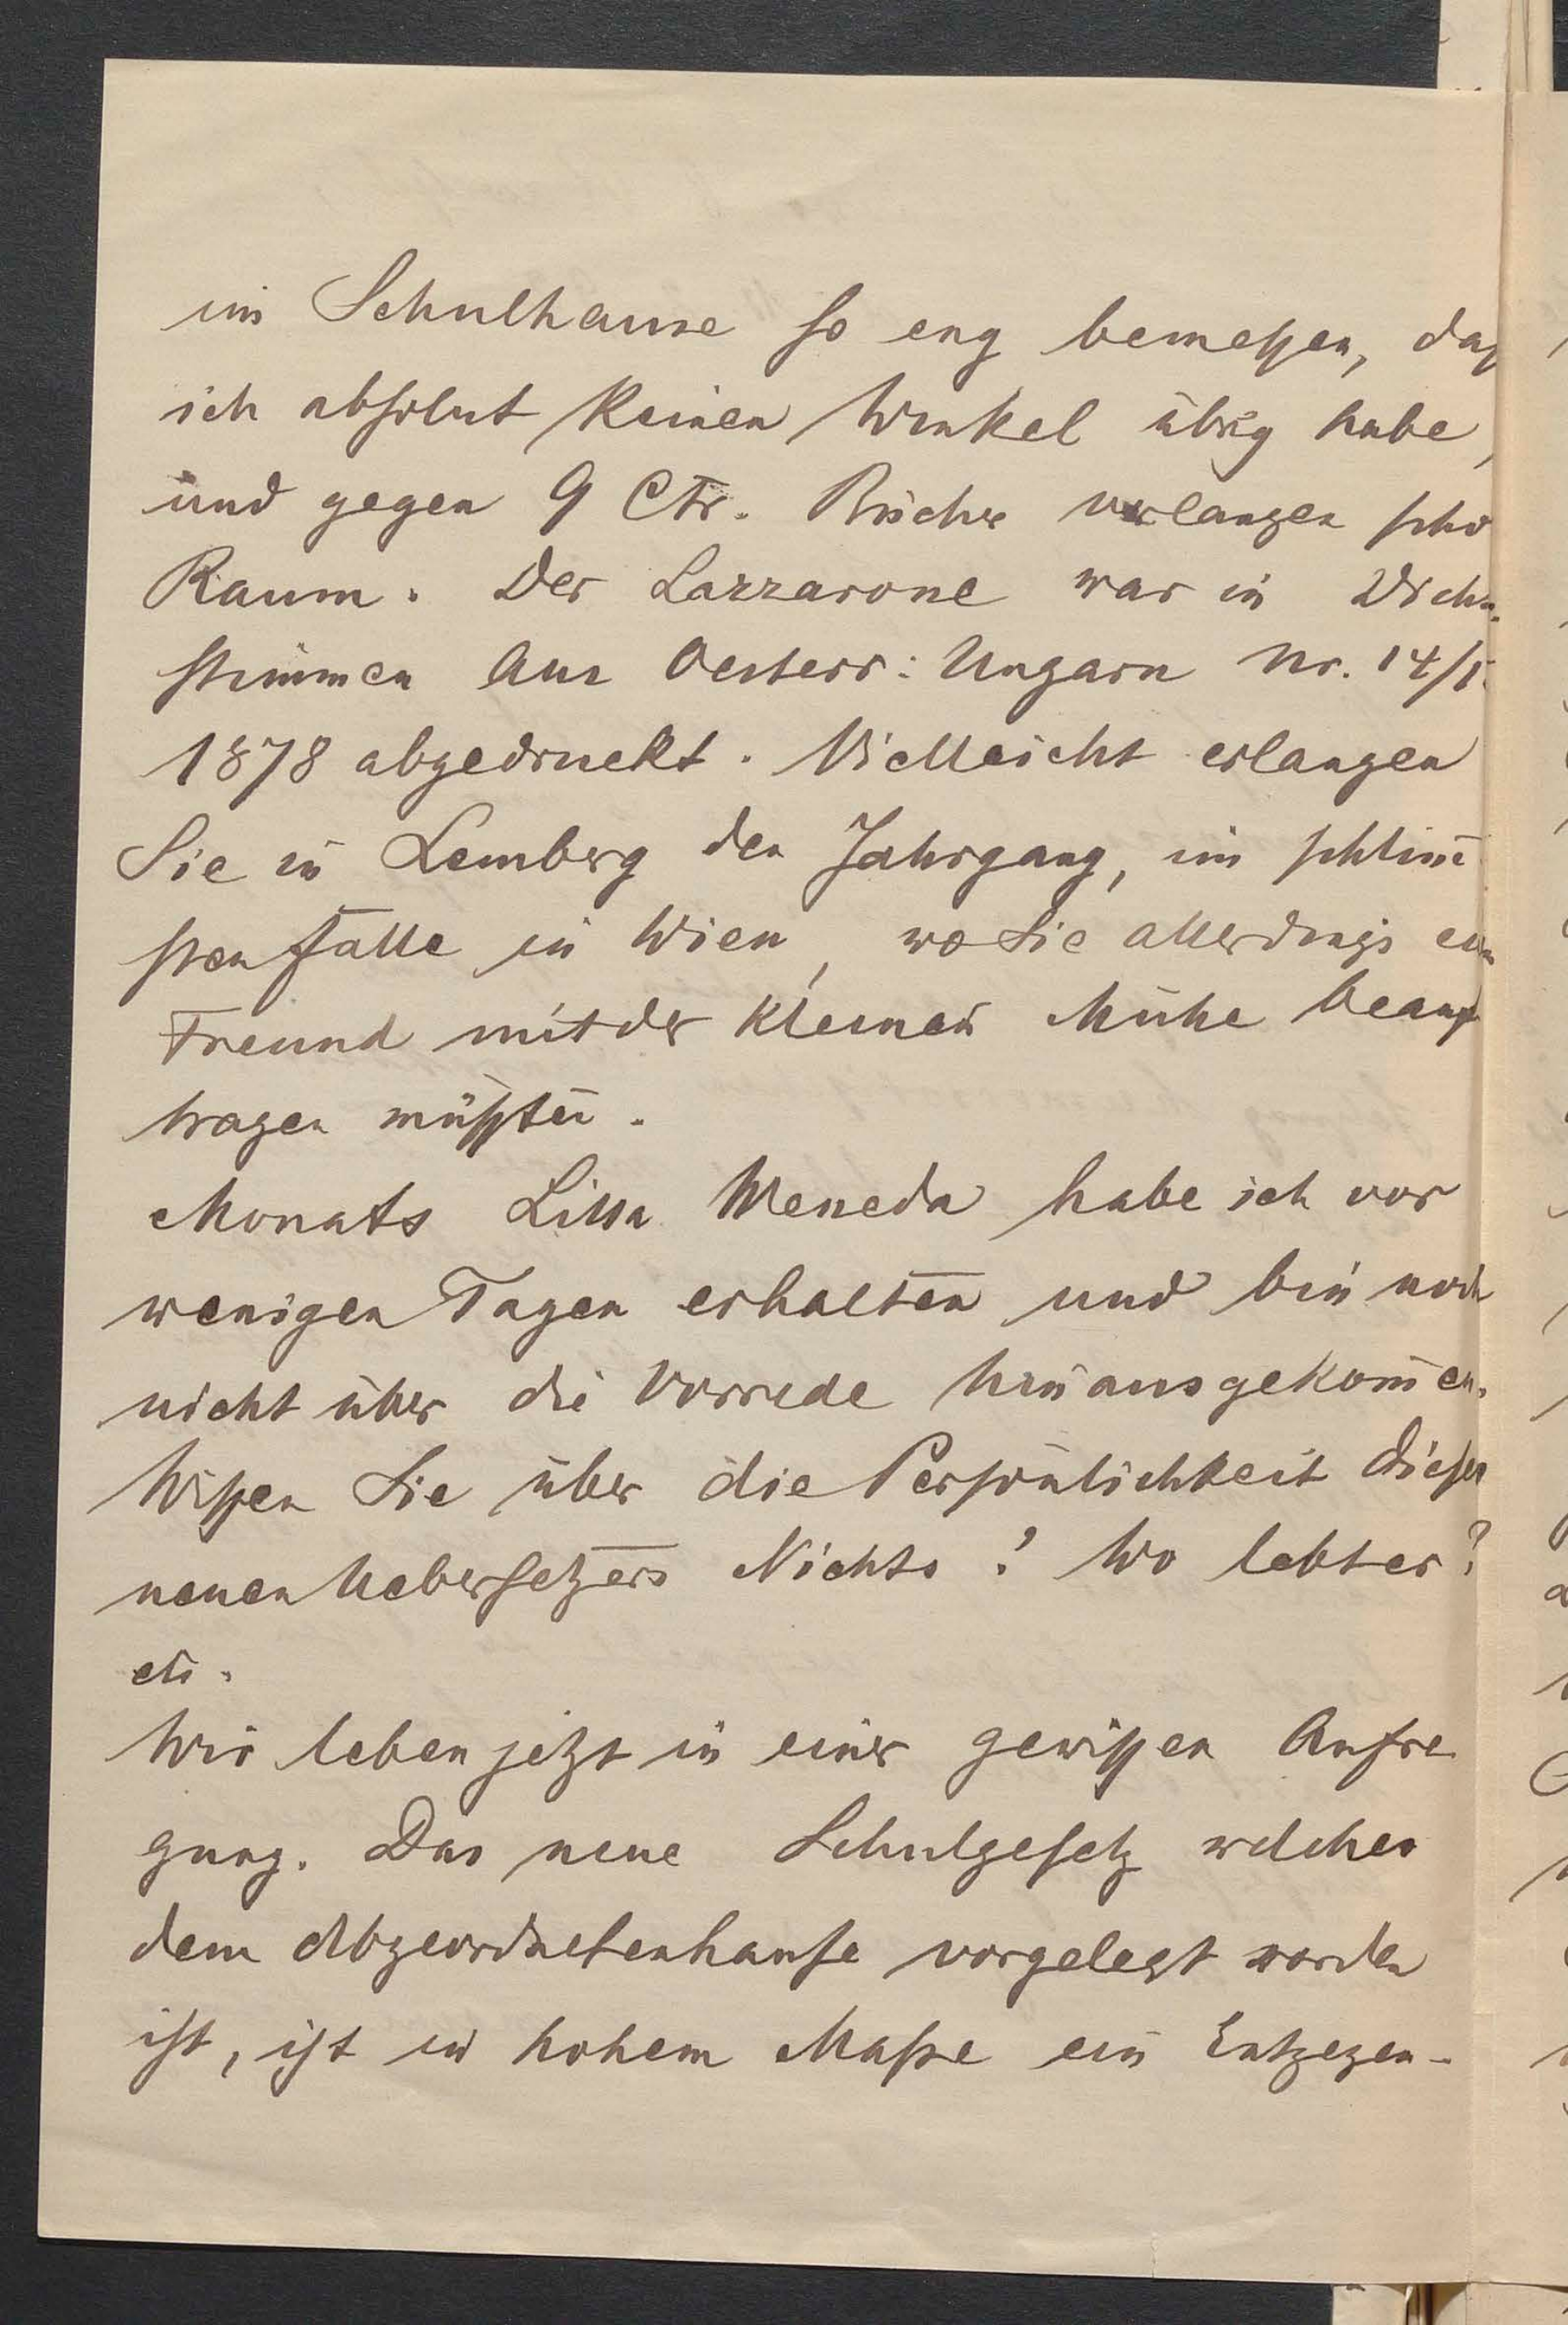 im Schulhause so eng bemessen, daß
ich absolut keinen Winkel übrig habe,
und gegen 9 Ctr. Bücher verlangen scho
Raum. Der Lazzarone war in Dich.
stimmen aus Oesterr: Ungarn Nr. 14/15
1878 abgedruckt. Vielleicht erlangen
Sie in Lemberg den Jahrgang, im schlim̄
sten Falle in Wien, wo Sie allerdings ein
Freund mit der kleinen Mühe beauf
tragen müßten.
Monats Lilla Weneda habe ich vor
wenigen Tagen erhalten und bin noch
nicht über die Vorrede hinausgekom̄en.
Wissen Sie über die Persönlichkeit dieses
neuen Uebersetzers Nichts? Wo lebt er?
etc.
Wir leben jetzt in einer gewissen Aufre
gung. Das neue Schulgesetz welches
dem Abgeordnetenhause vorgelegt worden
ist, ist in hohem Maße ein Entgegen-